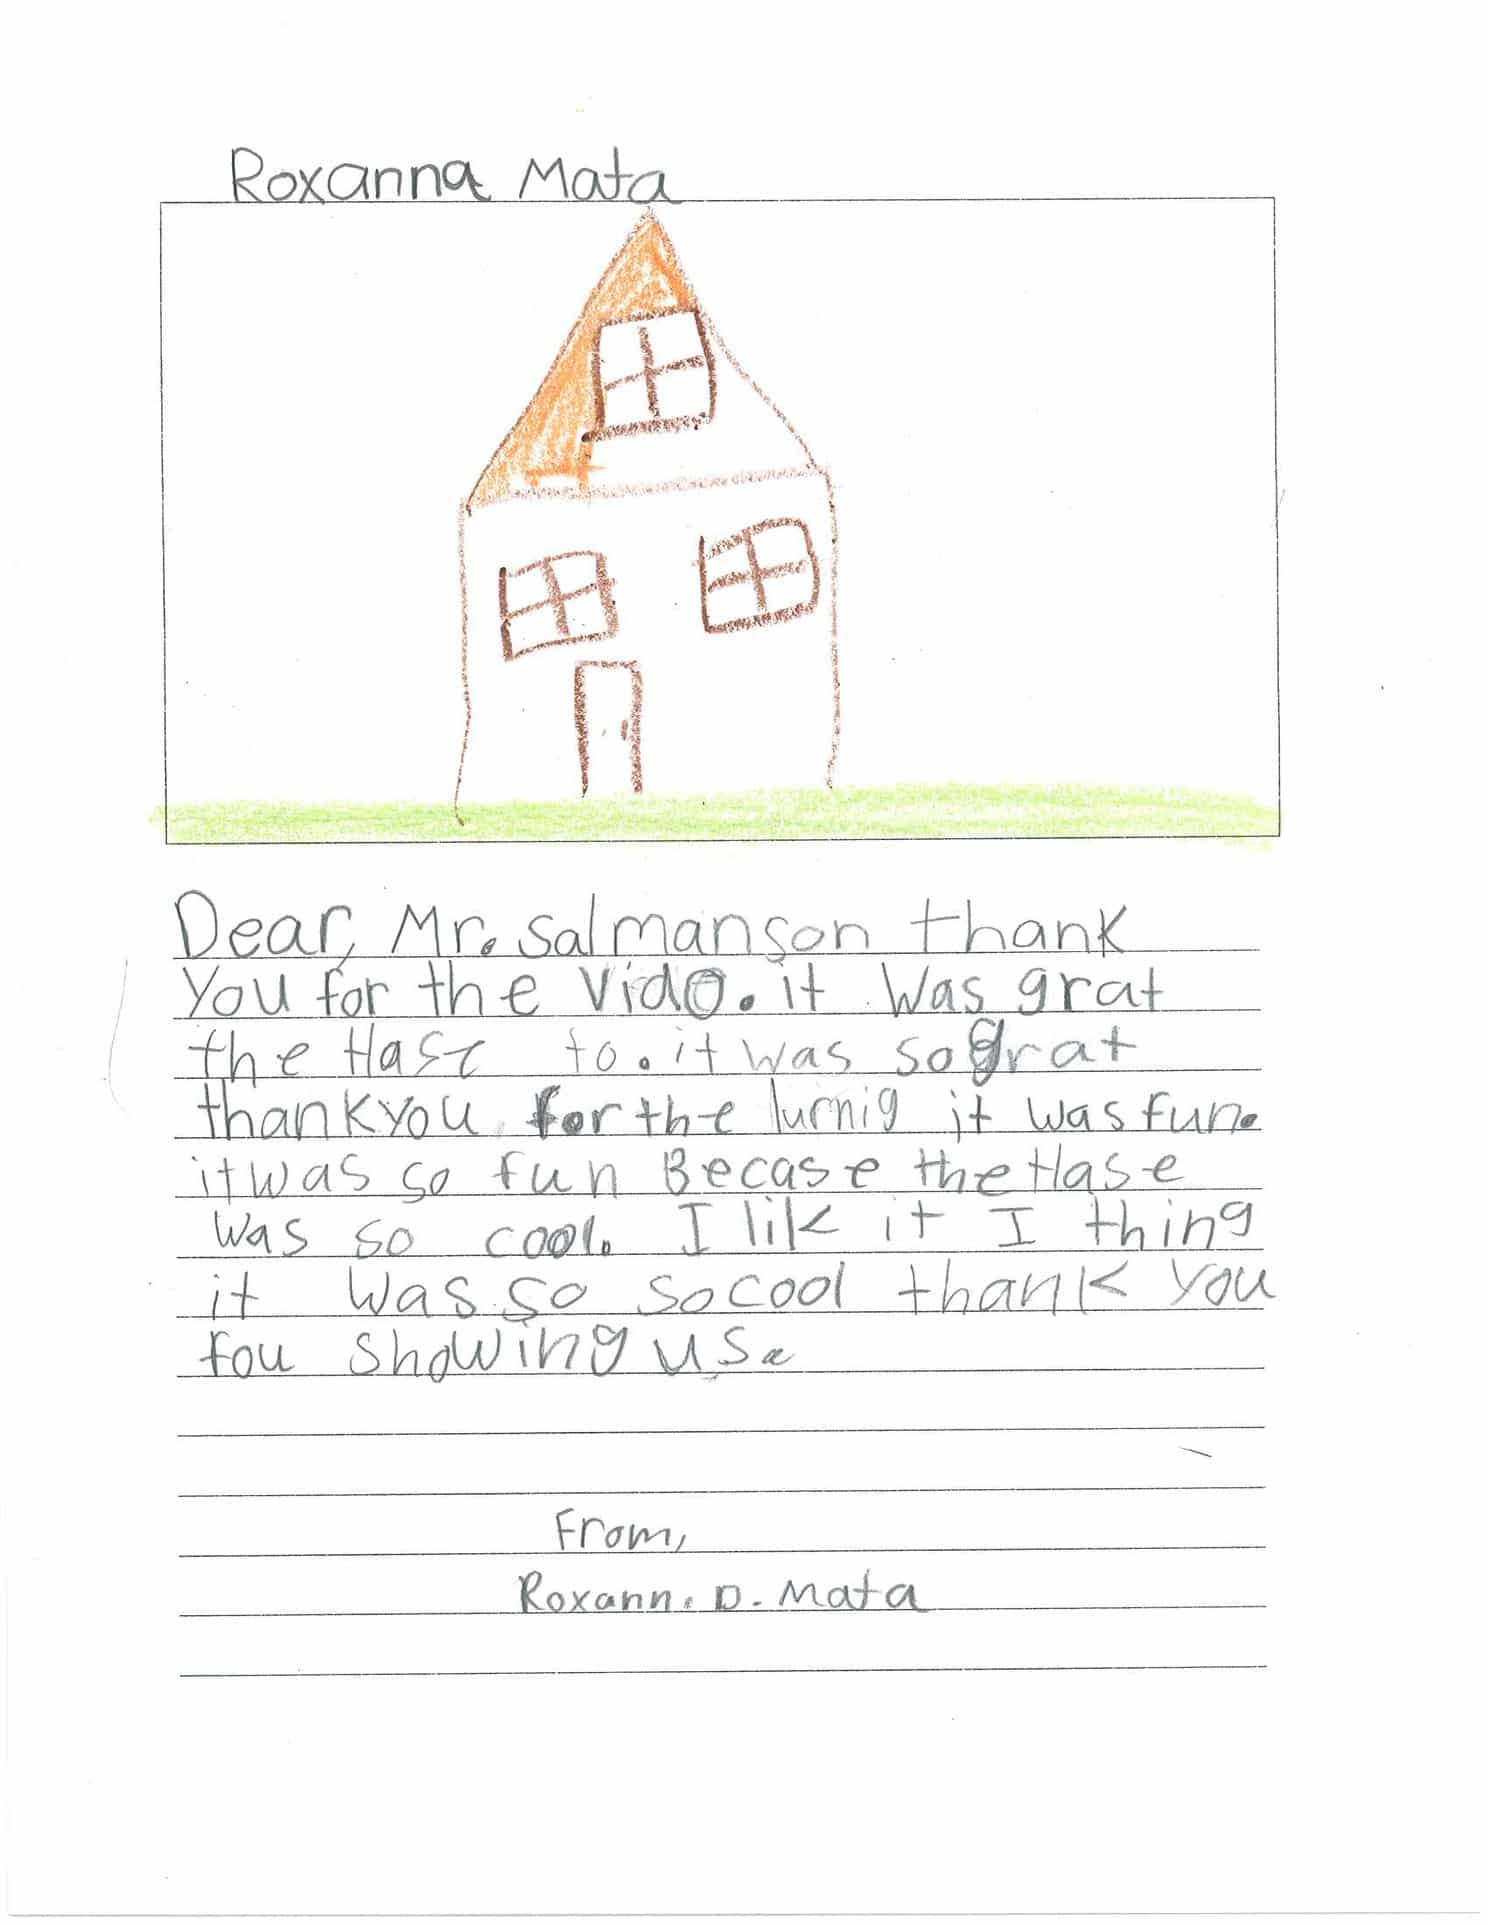 Roxanna Mata
Dear, Mr. Salmanson thank
You for the vido. it was grat
the Hase to. it was so grat
thank you for the lurnig it was fun.
it was so fun Becase the Hase
was so cool. I lik it I thing
it was so so cool thank you
fou showing us.
From,
Roxann. D. Mata